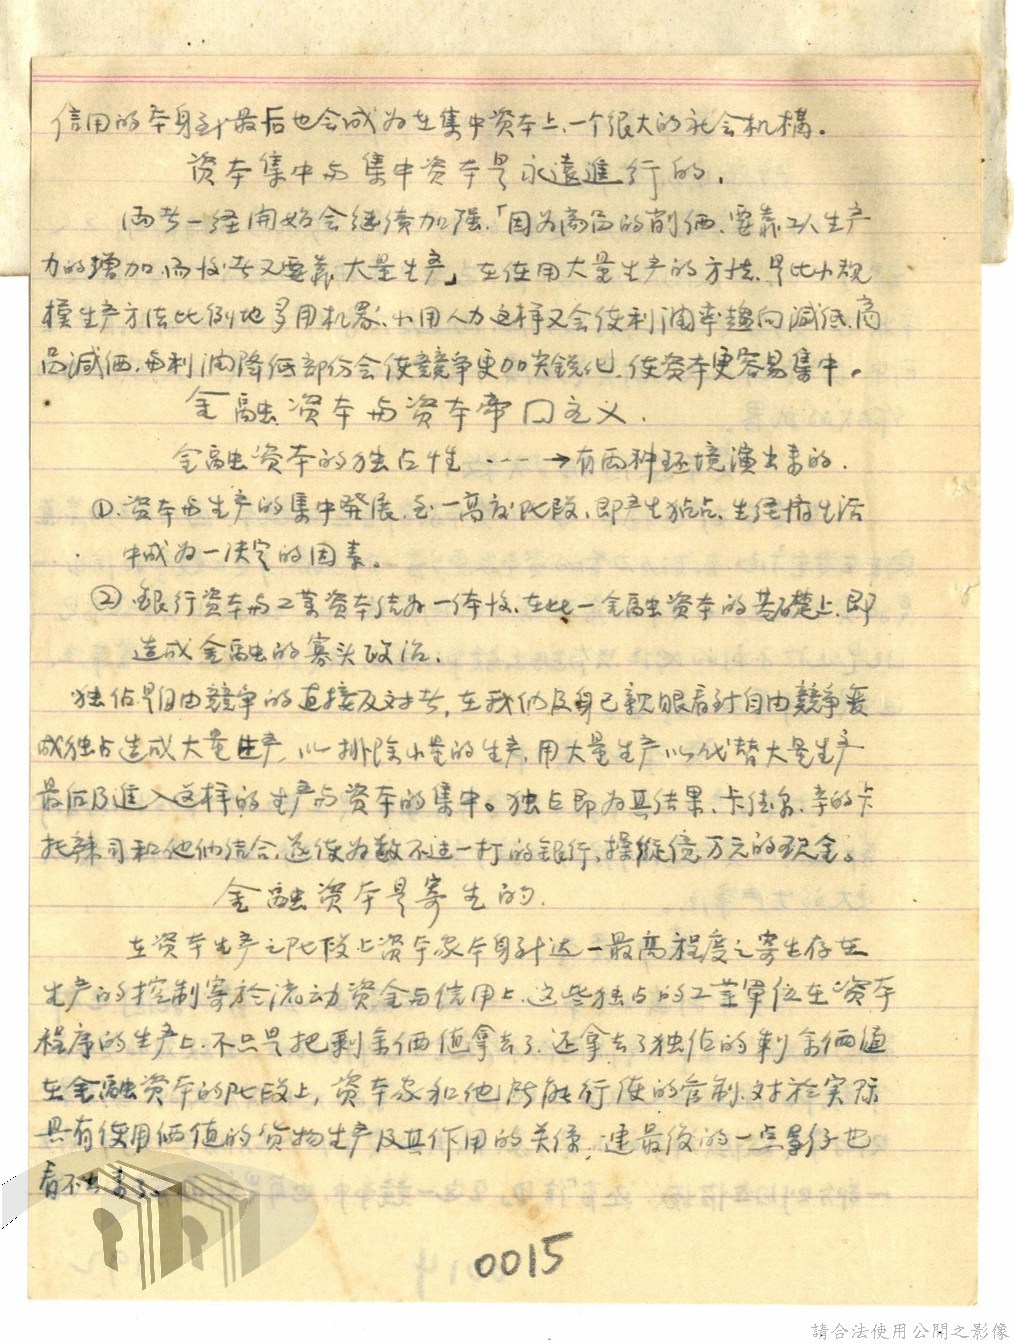 信用的本身到最后也会成为在集中资本上、一个很大的社会机構。
资本集中与集中资本是永遠進行的.
两者一经開始会继续加强.「因为商品的削価、要靠工人生产
力的增加、而後者又要靠大量生产」在使用大量生产的方法.是比小规
模生产方法比例地多用机器、小用人力这样又会使利润率趨向减低、商
品减価.与利润降低部份会使競争更加尖鋭化、使资本更容易集中。
金融资本与资本帝囗主义.
金融资本的独占性 ----→有两种环境演出来的.
①.资本与生产的集中発展.至一高度阶段、即产生独占、生经济生活
中成为一决定的因素。
② 銀行资本与工業资本结为一体後、在此一金融资本的基礎上、即
造成金融的寡头政治.
独佔是自由競争的直接反対者, 在我们及自己親眼看到自由競争变
成独占造成大量生产, 以排除小量的生产, 用大量生产以代替大量生产
最后及進入这样的生产与资本的集中。独占即为其结果、卡德尔、辛的卡
托辣司和他们结合、遂使为数不过一打的銀行、操縱億万元的现金。
金融资本是寄生的.
在资本生产之阶段上资本家本身到达一最高程度之寄生存在
生产的控制寄於流动资金与信用上.这些独占的工業单位在资本
程序的生产上.不只是把剩余価值拿去了.还拿去了独佔的剩余価值
在金融资本的阶段上, 资本家和他所能行使的管制、对於实际
具有使用価值的货物生产及其作用的关係, 連最後的一点影子也
看不出来了。
0015
請合法使用公開之影像